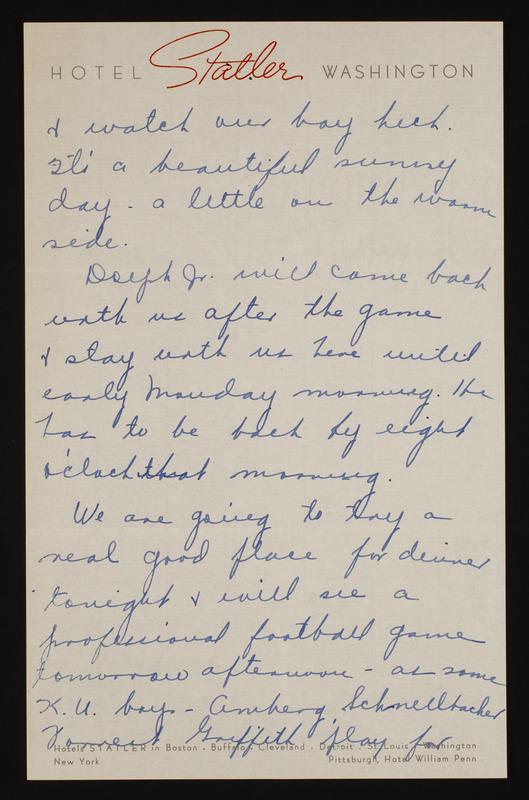 HOTEL Statler WASHINGTON
& watch our boy kick.
It's a beautiful sunny
day - a little on the warm
side.
Dolph Jr. will come back
with us after the game
& stay with us here until
early Monday morning. He
has to be back by eight
o'clock that morning.
We are going to try a
real good place for dinner
tonight & will see a
professional football game
tomorrow afternoon - as some
K.U. boys - Amberg, Schnellbacher
Forrest Griffith play for
Hotels STATLER in Boston . Buffalo . Cleveland . Detroit . St. Louis . Washington
New York
Pittsburgh, Hotel William Penn